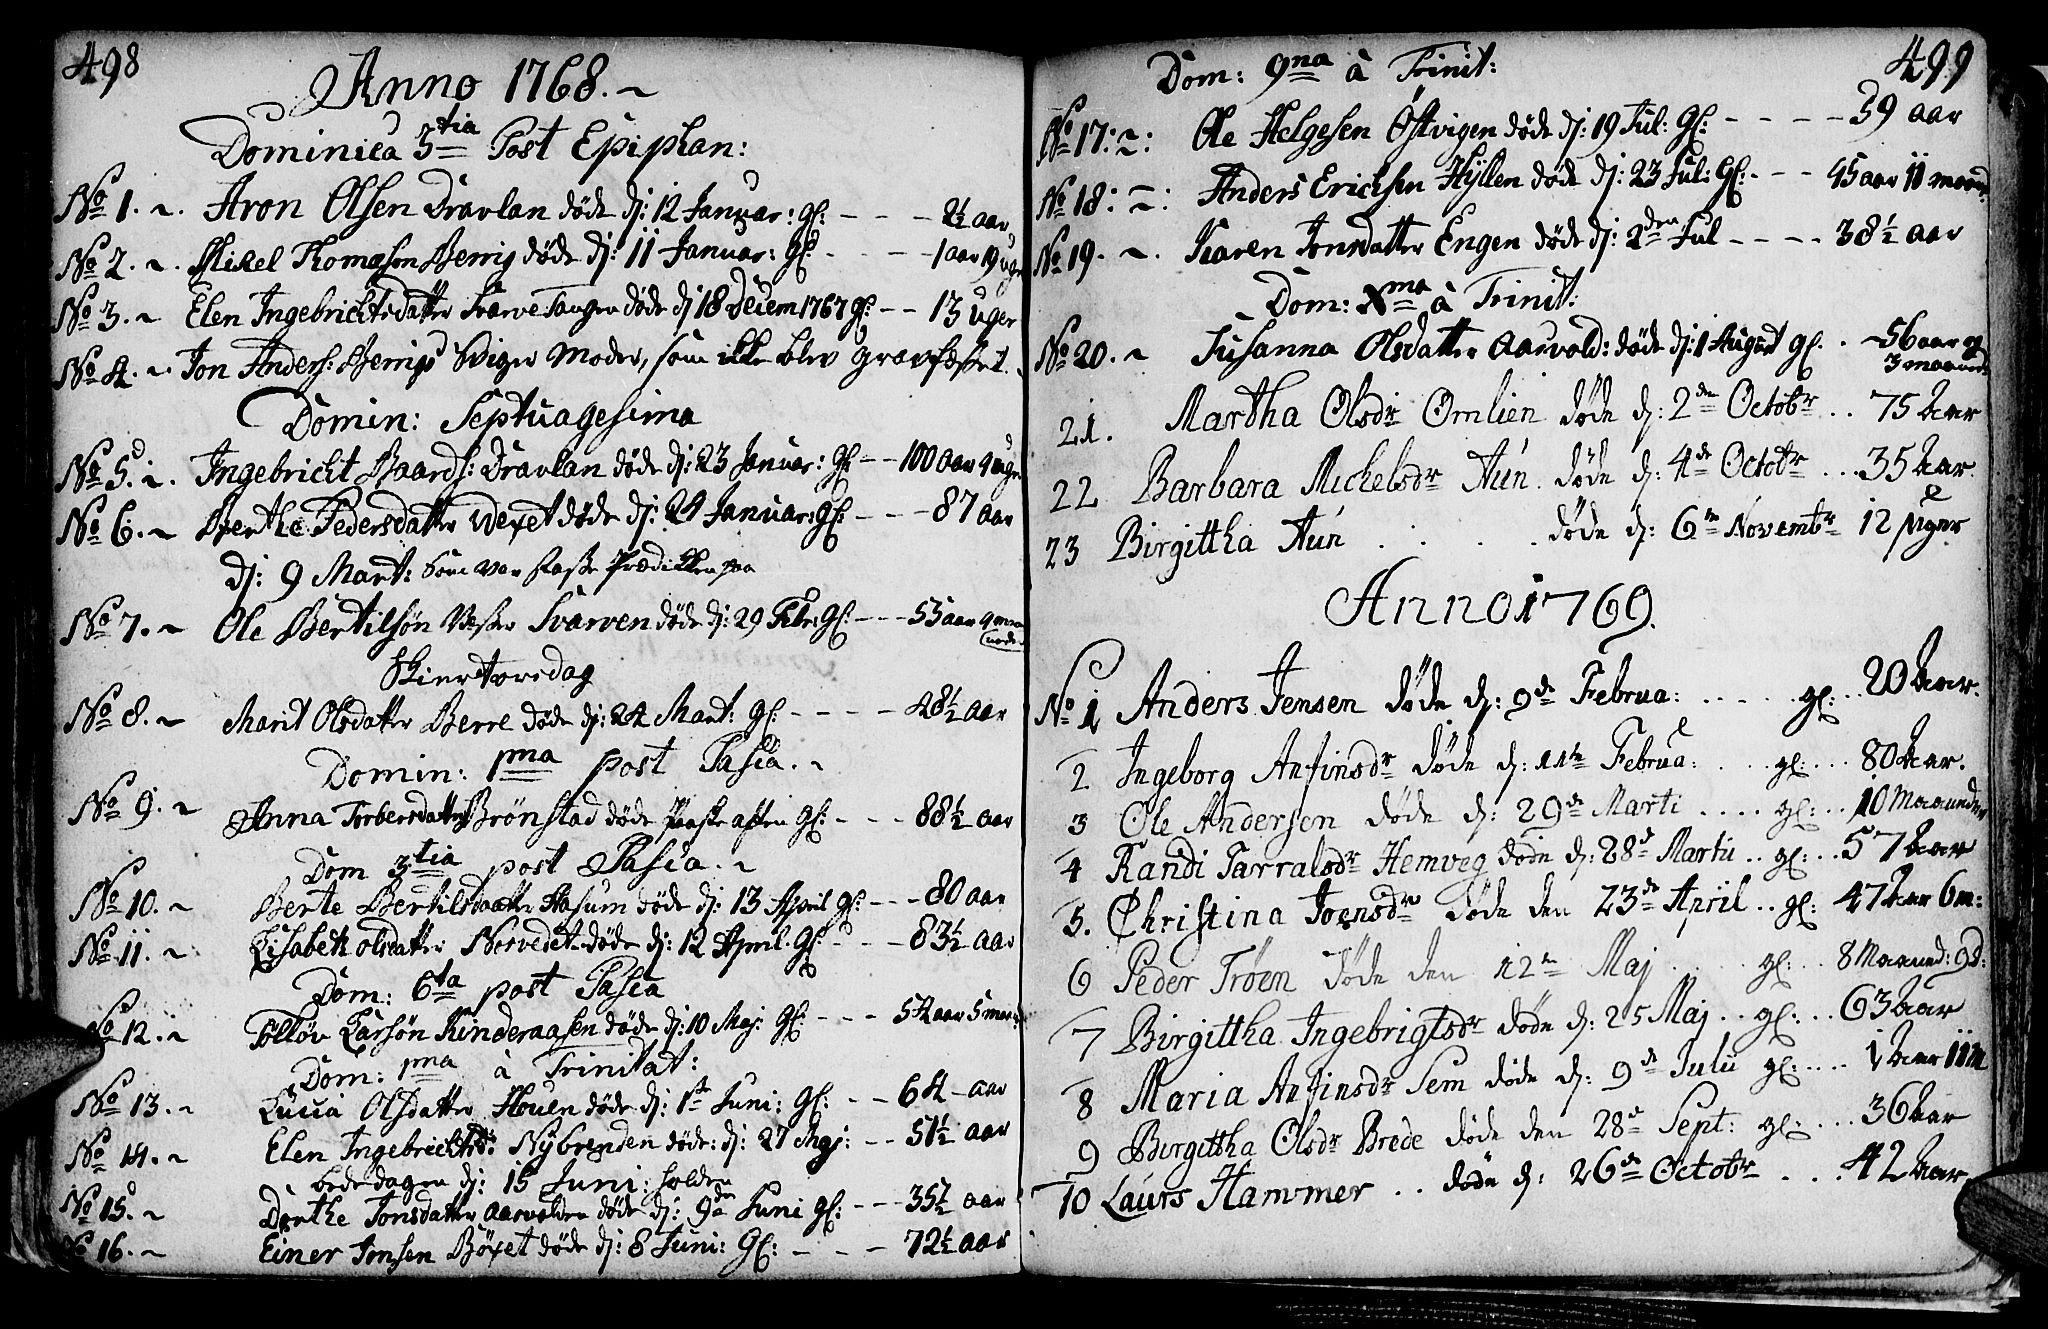 498
Anno 1768. ~
Dominica 3tia Post Epiphan:
No 1. ~. Aron Olsen Dravlan døde dj: 12 Januar: gl: - - - 2½ aar
No 2. ~. Mikel Thomæson Berrig døde dj: 11 Januar: gl: - - - 1 aar 19 uger
No 3. ~ Elen Ingebrichtsdatter døde dj 18 Decem 1767 gl: - - 13 uger
No 4. ~ Jon Anders: Berrigs Sviger Moder, som ikke blev gravfæstet.
Domin: Septuagesima
No 5. ~. Ingebricht Baards: Dravlan døde dj: 23 Januar: gl: - - 100 aar 9 uger
No 6. ~ Berthe Pedersdatter døde dj: 24 Januar: gl: - - - 87 aar
dj: 9 Mart: som var faste Prædikken paa
No 7. ~ Ole Bertilsøn Vester Svarven døde dj: 29 Febr: gl: - - - 55 aar 9 maaneder
Skiertorsdag
No 8. ~ Marit Olsdatter Berre døde dj: 24 Mart: gl: - - - - 48½ aar
Domin: 1ma post Pasca. ~
No 9. ~ Anna Torbersdatter Brønstad døde Paaske aften gl: - - - 88½ aar
Dom 3tia post Pasca. ~
No 10. ~ Berte Bertilsdaatter Hasum døde dj: 13 April gl: - - - 80 aar
No 11. ~ Lisabeth olsdatter Norvedet døde dj: 12 April. gl: - - - 83½ aar
Dom: 6ta post Pasca
No 12. ~ Tølløv Larsøn Kinderaasen døde dj: 10 Maj: gl: - - - 54 aar 5 maa
Dom: 1ma à Trinitat:
No 13. ~ Lucia Olsdatter Houen døde dj: 1st Juni: gl: - - 64 - aar
No 14. ~ Elen Ingebrechtsd: Nybrenden døde: dj: 27 Maj: - - 51½ aar
bededagen dj: 15 Juni: holden
No 15. ~ Dorthe Jonsdatter Aarvolden døde dj: 9de Juni gl: - - 35½ aar
No 16. ~ Einer Jonsen Bøxet døde dj: 8 Juni: gl: - - - 72½ aar
499
Dom: 9na à Trinit:
No 17: ~: Ole Helgesen Østvigen døde dj: 19 Jul: gl: - - - - 39 aar
No 18: ~: Anders Erichsen Hyllen døde dj: 23 Jul: gl: - - - 45 aar 11 maaned
No 19. ~. Karen Jonsdatter Engen døde dj: 2den Jul - - - - 38½ aar
Dom: Xma à Trinit:
No 20. ~ Susanna Olsdatter Aarvold: døde dj: 1 August gl. . ~ 56 aar og
3 maaneder
21. Martha Olsdr Omlien døde d: 2den Octobr . . 75 Aar
22 Barbara Mickelsdr Aun døde d: 4de Octobr . . . 35 Aar
23 Birgittha Aun . . . . døde d: 6te Novembr 12 Uger
Anno 1769.
No 1 Anders Jensen døde d: 9de Februa: . . . . . gl: . . 20 Aar.
2 Ingeborg Anfinsdr døde d: 11te Februa: . . . gl: . . . 80 Aar.
3 Ole Andersen døde d: 29de Marti . . . . gl: . . 10 Maaneder
4 Randi Tarralsdr Hemveg døde d: 28d Martii . . gl: . . 57 Aar
5. Christina Joensdr døde den 23de April . . gl: 47 Aar 6 m:
6 Peder Trøen døde den 12te Maj . . . . gl: . . 8 Maaned: 9 d:
7 Birgittha Ingebrigtsdr døde d: 25 Maj . . gl: . . . 63 Aar
8 Maria Anfinsdr Sem døde d: 9de Julii gl: . . . . 1 Aar 11 m
9 Birgittha Olsdr Brede døde den 28de Sept: gl: . . . 36 Aar
10 Laurs Hammer . . døde d: 26de Octobr . . . . 42 Aar.